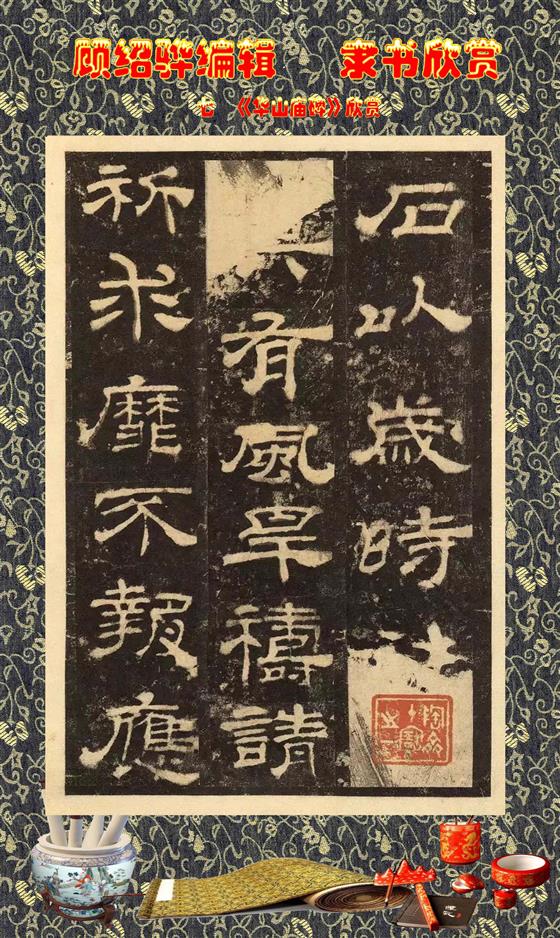 顾绍骅编辑 隶书欣赏
心 《华山庙碑》欣赏
石以歲時
有風旱禱請
祈求靡不報應